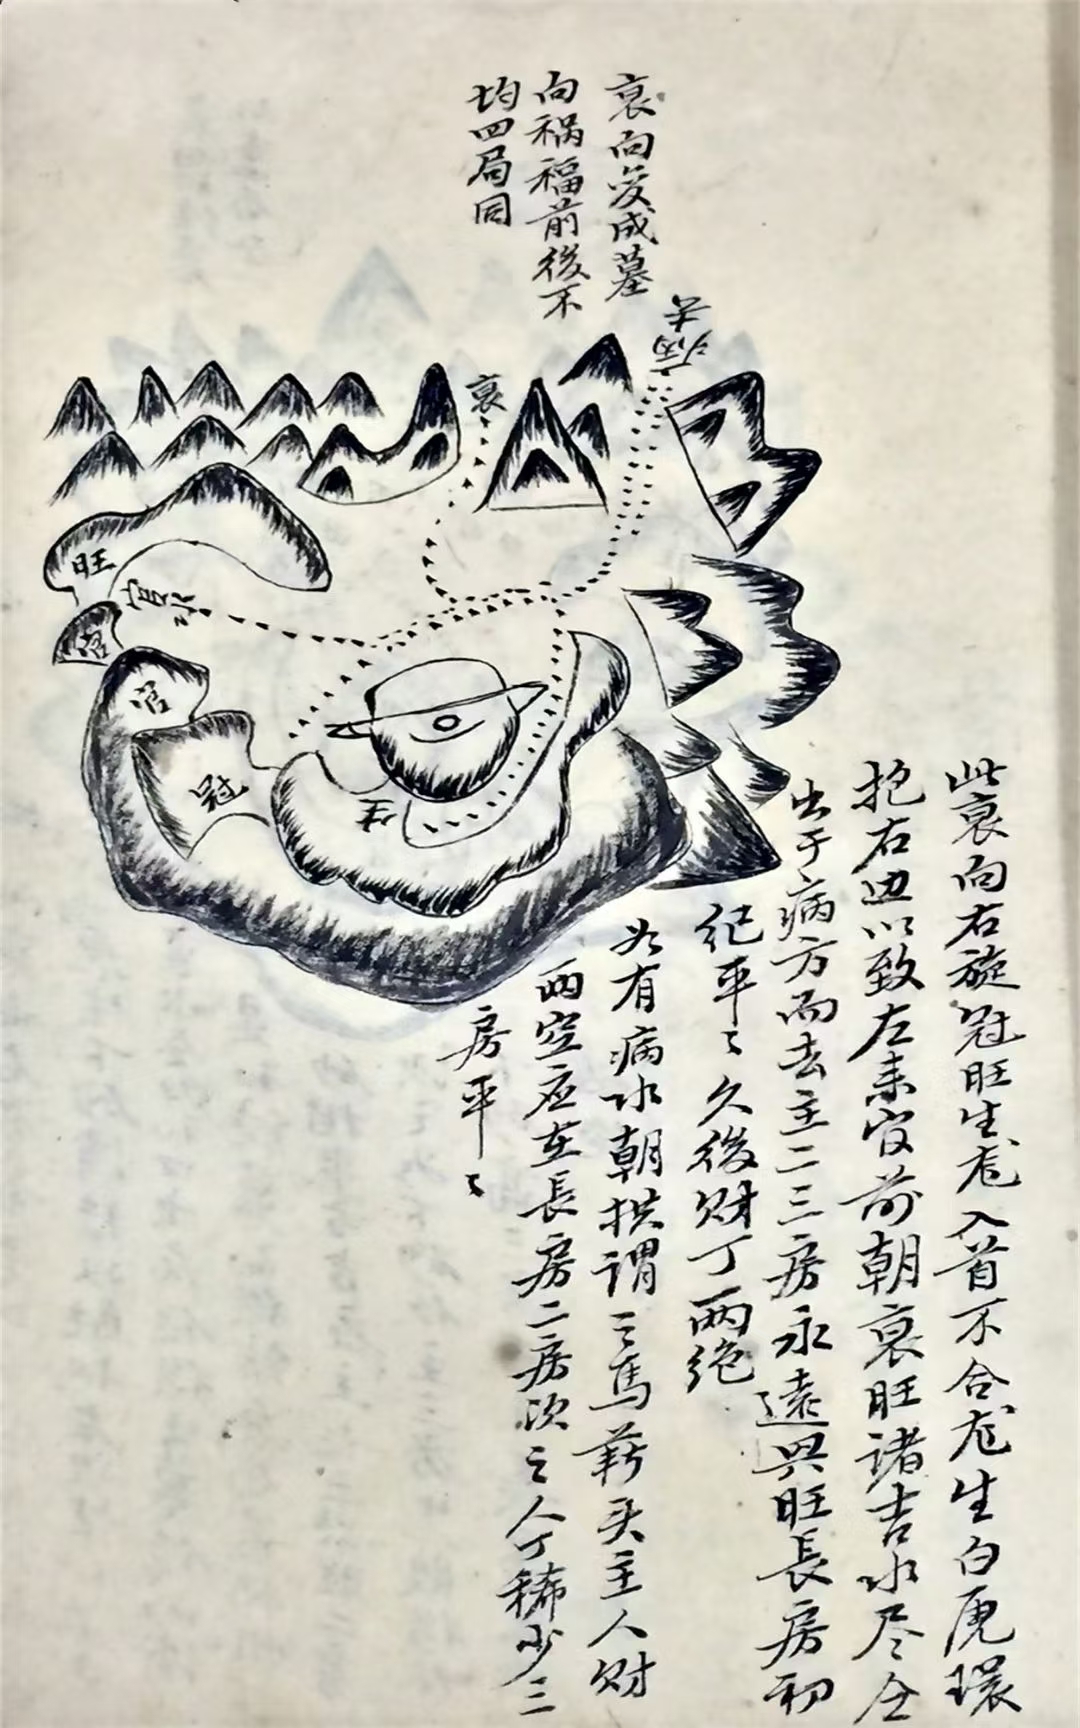 衰向变成墓
向祸福前後不
均四局同
病去
衰
旺
官水
官
官
冠
生
此衰向右旋冠旺生龙入首不合龙生白虎環
抱右边以致左来官前朝衰旺诸吉水尽
出于病方而去主二三房永遠兴旺長房初
纪平々久後财丁两绝
如有病水朝拱谓之馬薪头主人财
两空应在長房二房次之人丁稀少三
房平々